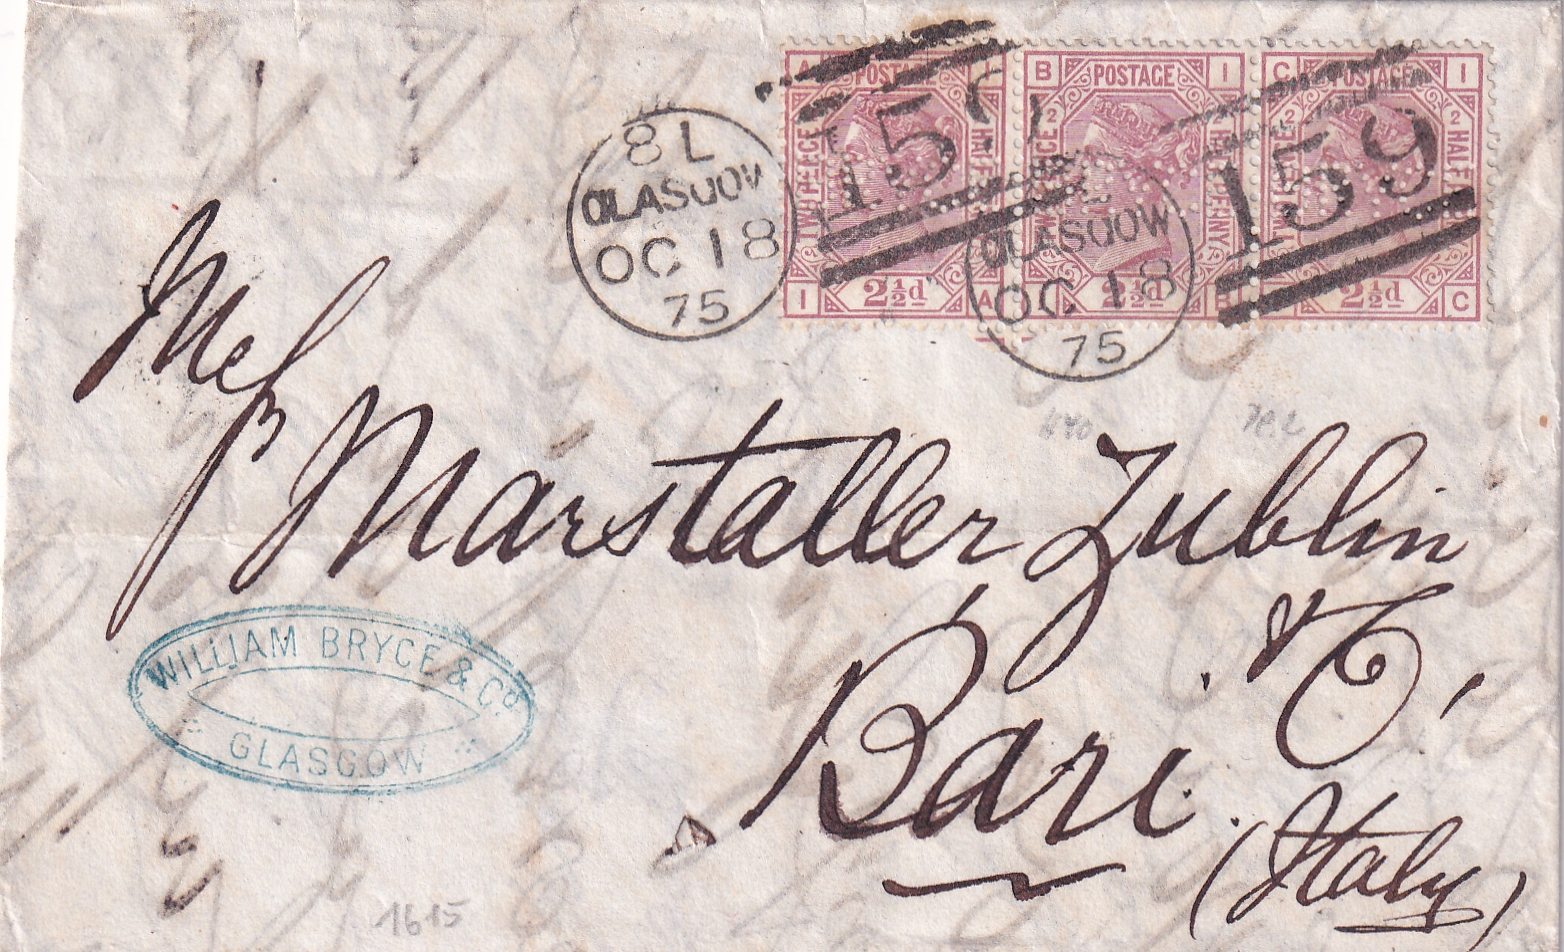 A POSTAGE I
B POSTAGE I
C POSTAGE I
2 2 2
TWO PENCE HALFPENNY
159
159
I 2½d A
2½d B
2½d C
8 L
GLASGOW
OC 18
75
L
GLASGOW
OC 18
75
Messrs
Marstaller Zublin
& Co
Bari.
(Italy)
WILLIAM BRYCE & Co.
GLASGOW
1615